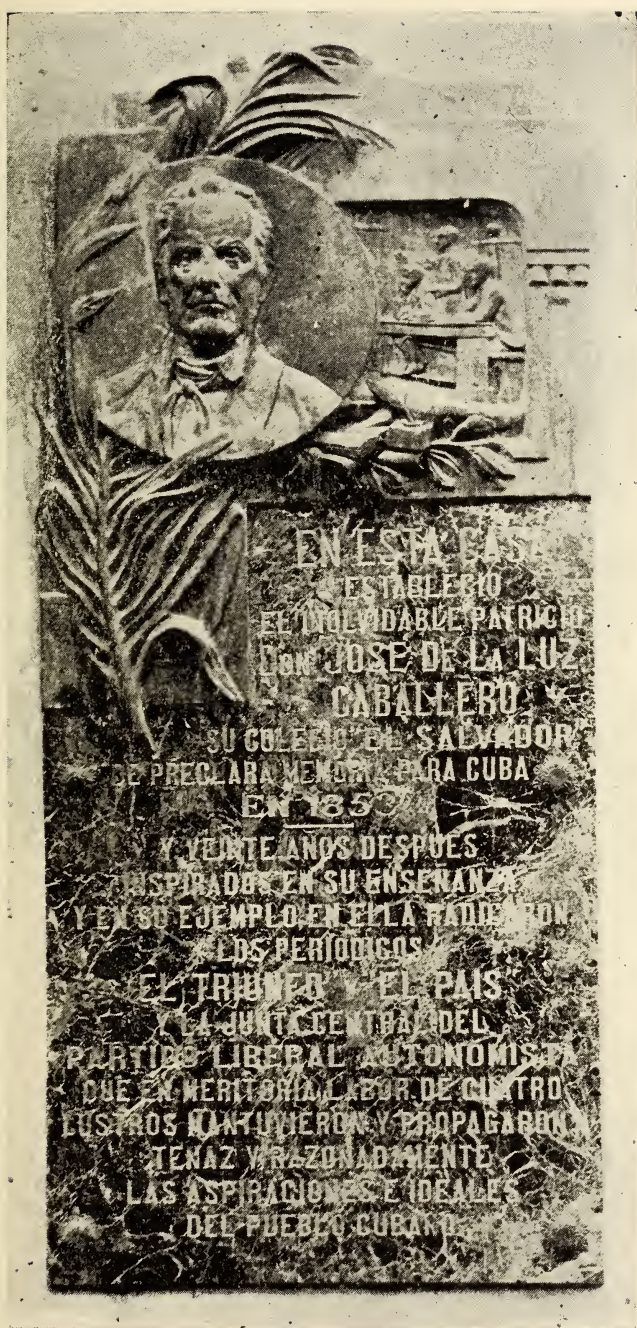 EN ESTA CASA
ESTABLECIO
EL INOLVIDABLE PATRICIO
DON JOSE DE LA LUZ
CABALLERO
SU COLEGIO "EL SALVADOR"
DE PRECLARA MEMORIA PARA CUBA
EN
Y VEINTE AÑOS DESPUES
INSPIRADOS EN SU ENSEÑANZA
Y EN SU EJEMPLO EN ELLA RADICARON
LOS PERIODICOS
EL TRIUNFO Y "EL PAIS"
Y LA JUNTA CENTRAL DEL
PARTIDO LIBERAL AUTONOMISTA
QUE EN MERITORIA LABOR DE CUATRO
LUSTROS MANTUVIERON Y PROPAGARON
TENAZ Y RAZONADAMENTE
LAS ASPIRACIONES E IDEALES
DEL PUEBLO CUBANO